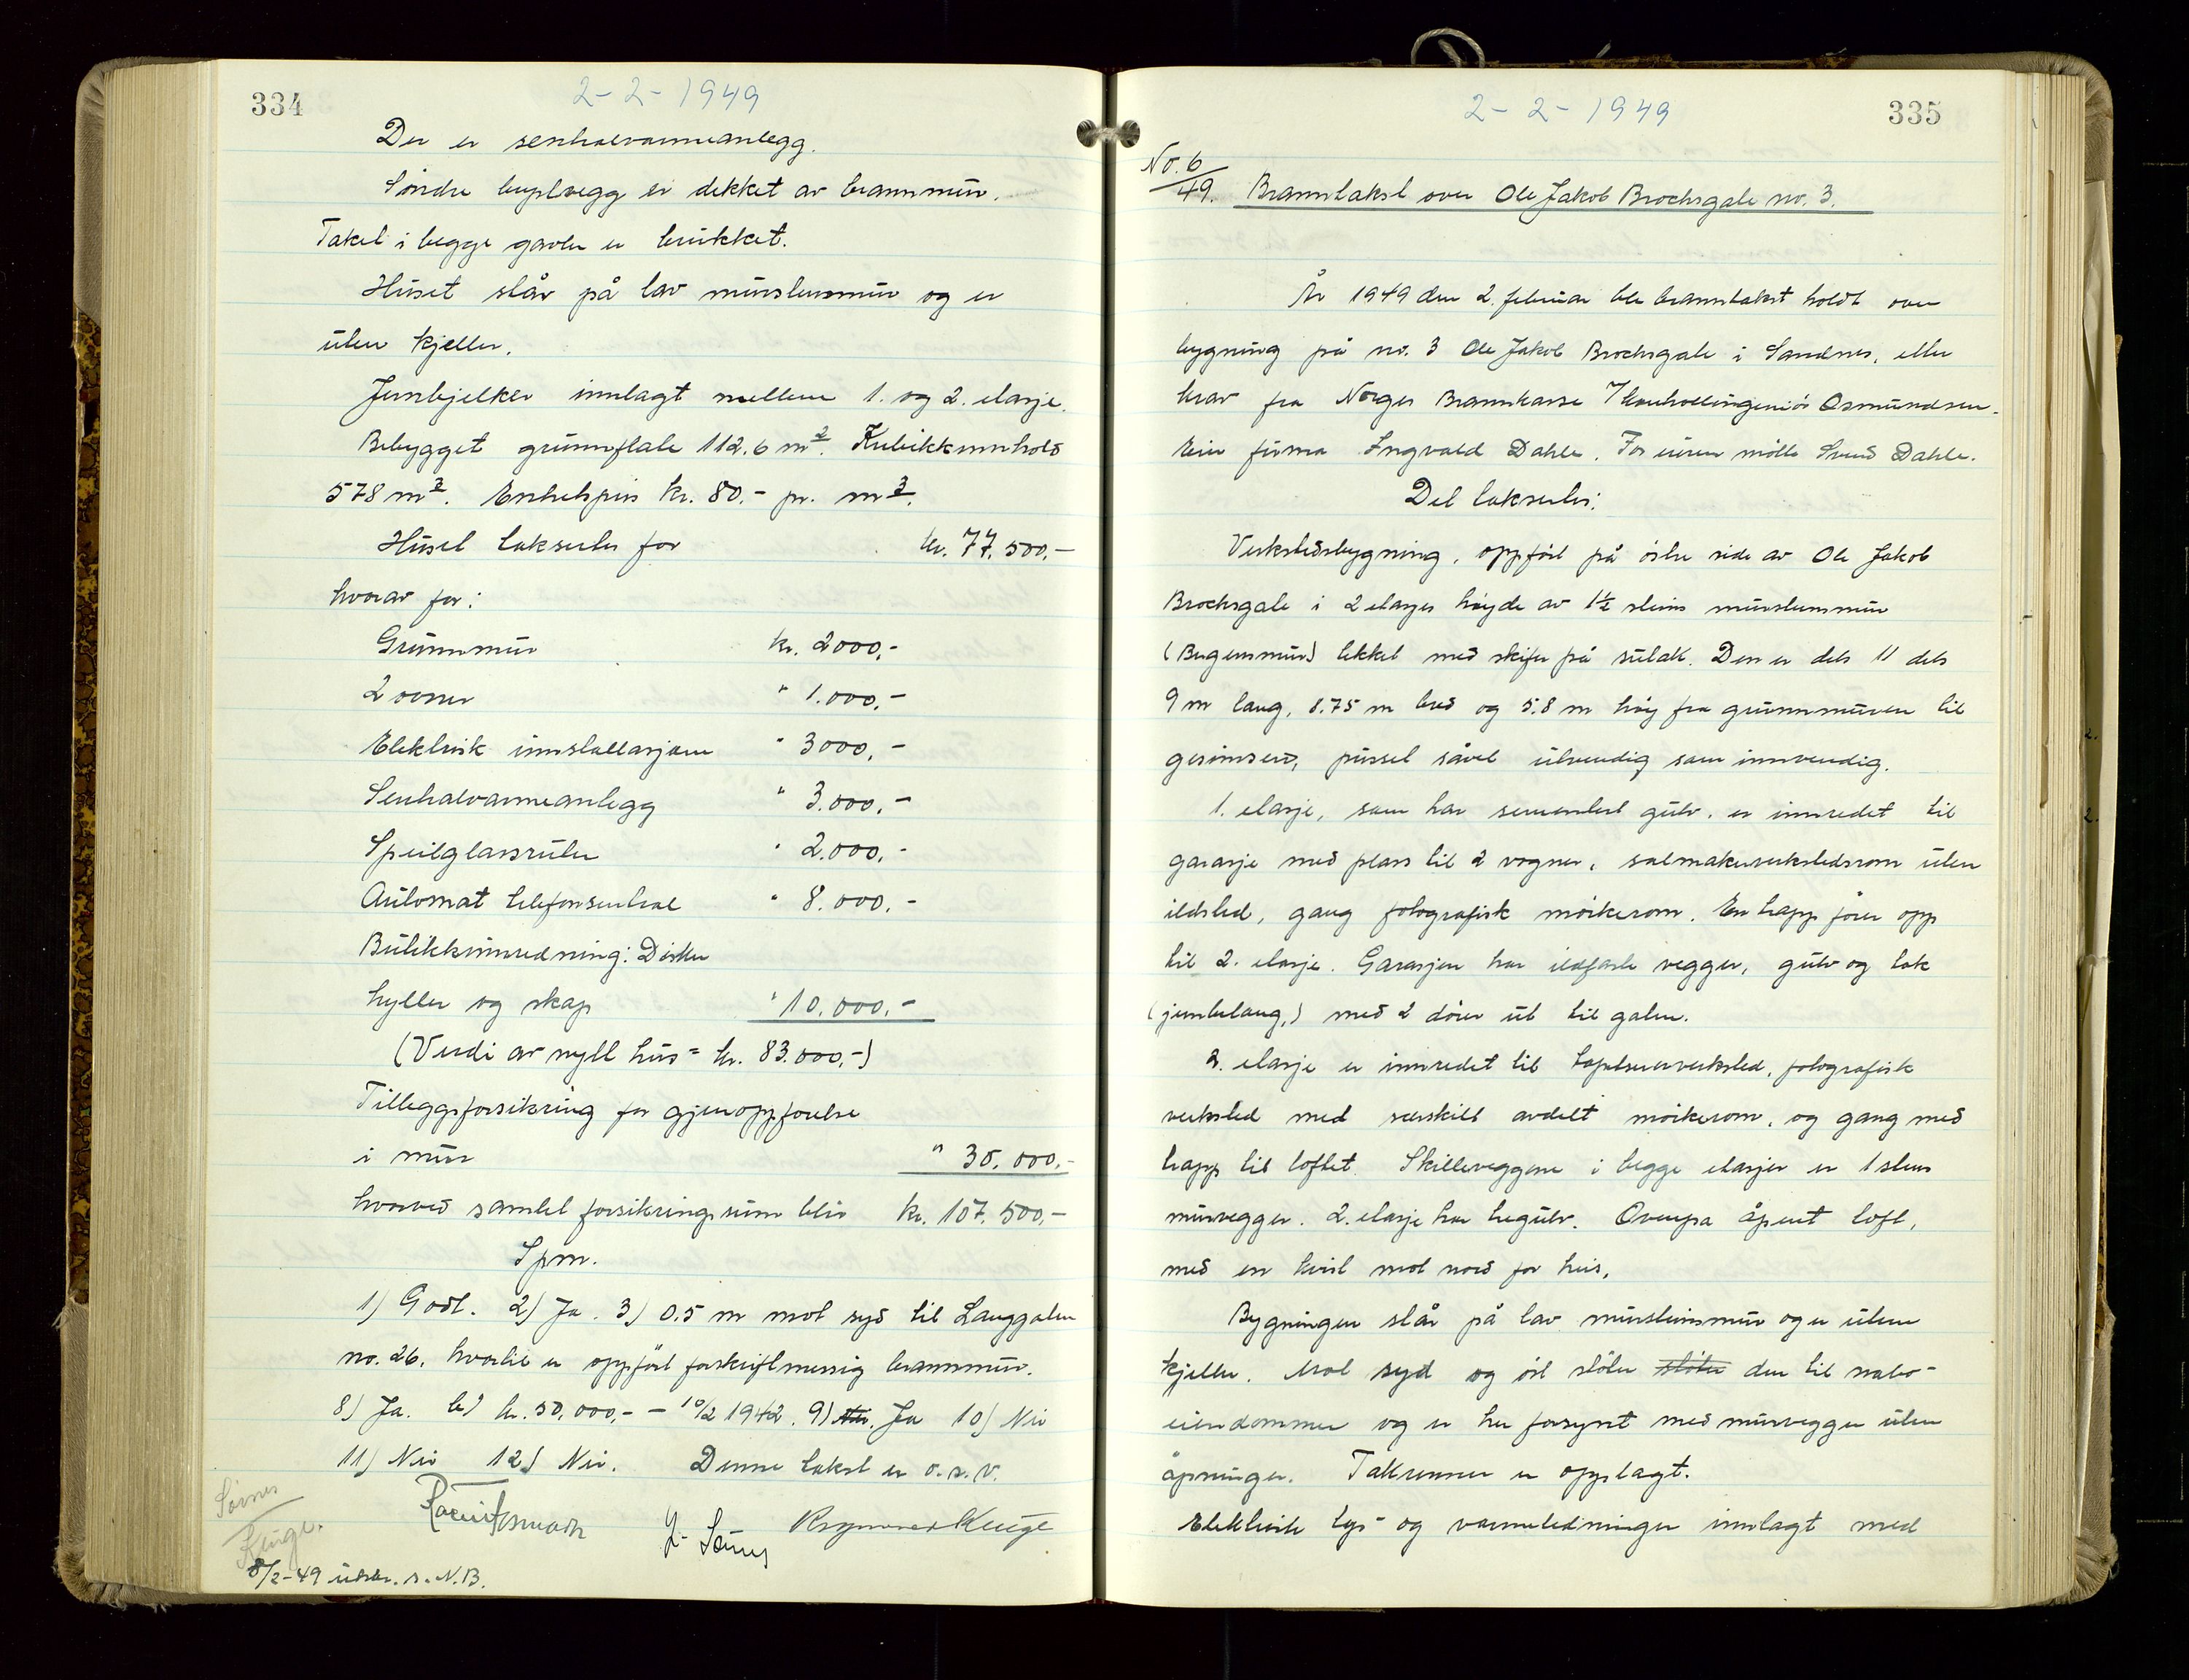 334
2-2-1949
Der er sentralvarmeanlegg.
Søndre buplvegg er dekket av brannmur.
Taket i begge gavler er brukket.
Huset står på lav murstensmur og er
uten kjeller.
Jernbjelker innlagt mellem 1. og 2. etasje.
Bebygget grunnflate 112.6 m². Kubikkinnhold
578 m³. Enhetspris kr. 80.- pr. m³.
Huset takseres for kr. 77.500,-
hvorav for:
Grunnmur kr. 2000,-
2 ovner " 1.000,-
Elektrisk innstallasjon " 3000,-
Sentralvarmeanlegg " 3.000,-
Speilglassruter " 2.000,-
Automat telefonsentral " 8.000,-
Butikkinnredning: Disker
hyller og skap " 10.000,-
(Verdi av nytt hus = kr. 83.000,-)
Tilleggsforsikring for gjenoppførelse
i mur " 30.000,-
hvorved samlet forsikringssum blir kr. 107.500,-
Spm.
1) Godt. 2) Ja. 3) 0.5 m mot syd til Langgaten
no. 26, hvortil er oppført forskriftmessig brannmur.
8) Ja. b) kr. 50,000,- - 10/2 1942. 9) Nei. Ja 10) Nei
11) Nei 12) Nei. Denne takst er o.s.v.
Sørnes
Kluge.
Sørnes Kluge
8/2-49 utskr. s. N.B.
2-2-1949
335
No. 6/49. Branntakst over Ole Jakob Brochsgate no. 3.
År 1949 den 2. februar ble branntakst holdt over
bygning på no. 3 Ole Jakob Brochsgate i Sandnes, etter
krav fra Norges Brannkasse v/kontrollingeniør Asmundsen.
Eier firma Ingvald Dahle. For eieren møtte Svend Dahle.
Det takseres:
Verkstedsbygning, oppført på østre side av Ole Jakob
Brochsgate i 2 etasjes høyde av 1½ steins murstensmur
(Bergensmur) tekket med skifer på sutak. Den er dels 11 dels
9 m lang, 8.75 m bred og 5.8 m høy fra grunnmuren til
gesimsen, pusset såvel utvendig som innvendig.
1. etasje, som har sementert gulv, er innredet til
garasje med plass til 2 vogner, salmakerverkstedsrom uten
ildsted, gang fotografisk mørkerom. En trapp fører opp
til 2. etasje. Garasjen har ildfaste vegger, gulv og tak
(jernbetong,) med 2 dører ut til gaten.
2. etasje er innredet til tapetsererverksted, fotografisk
verksted med særskilt avdelt mørkerom, og gang med
trapp til loftet. Skilleveggene i begge etasjer er 1 stens
murvegger. 2. etasje har tregulv. Ovenpå åpent loft,
med en kvist mot nord for heis.
Bygningen står på lav mursteinsmur og er uten
kjeller. Mot syd og øst støter støter den til nabo-
eiendommer og er her forsynt med murvegger uten
åpninger. Takrenner er opplagt.
Elektrisk lys- og varmeledninger innlagt med